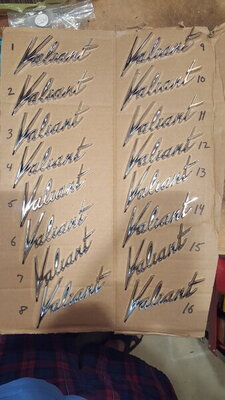 1 Valiant
2 Valiant
3 Valiant
4 Valiant
5 Valiant
6 Valiant
7 Valiant
8 Valiant
Valiant 9
Valiant 10
Valiant 11
Valiant 12
Valiant 13
Valiant 14
Valiant 15
Valiant 16